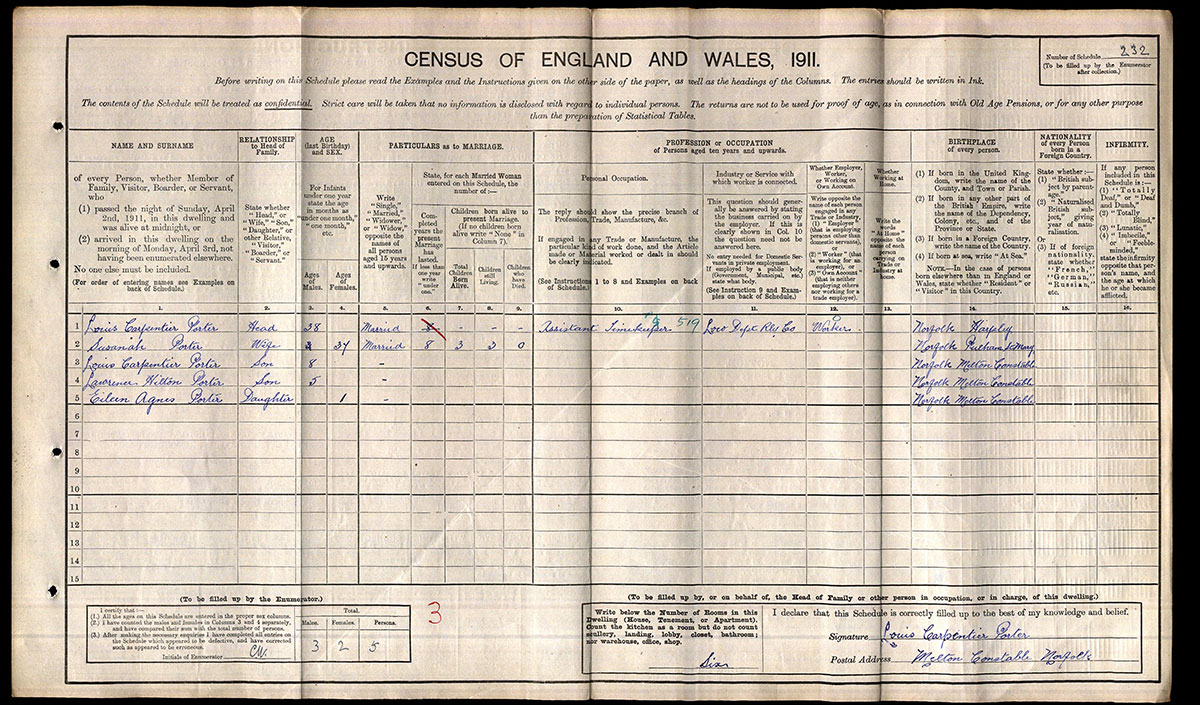 232
CENSUS OF ENGLAND AND WALES, 1911.
Number of Schedule
(To be filled up by the Enumerator
after collection.)
Before writing on this Schedule please read the Examples and the Instructions given on the other side of the paper, as well as the headings of the Columns. The entries should be written in Ink.
The contents of the Schedule will be treated as confidential. Strict care will be taken that no information is disclosed with regard to individual persons. The returns are not to be used for proof of age, as in connection with Old Age Pensions, or for any other purpose
than the preparation of Statistical Tables.
NAME AND SURNAME
of every Person, whether Member of
Family, Visitor, Boarder, or Servant,
who
(1) passed the night of Sunday, April
2nd, 1911, in this dwelling and
was alive at midnight, or
(2) arrived in this dwelling on the
morning of Monday, April 3rd, not
having been enumerated elsewhere.
No one else must be included.
(For order of entering names see Examples on
back of Schedule.)
RELATIONSHIP
to Head of
Family.
State whether
"Head," or
"Wife," "Son,"
"Daughter," or
other Relative,
"Visitor,"
"Boarder," or
"Servant."
AGE
(last Birthday)
and SEX.
For Infants
under one year
state the age
in months as
"under one month,"
"one month,"
etc.
Ages
of
Males.
Ages
of
Females.
PARTICULARS as to MARRIAGE.
Write
"Single,"
"Married,"
"Widower,"
or "Widow,"
opposite the
names of
all persons
aged 15 years
and upwards.
State, for each Married Woman
entered on this Schedule, the
number of:—
Completed
years the
present
Marriage
has
lasted.
If less than
one year
write
"under
one."
Children born alive to
present Marriage.
(If no children born
alive write "None" in
Column 7).
Total
Children
Born
Alive.
Children
still
Living.
Children
who
have
Died.
PROFESSION or OCCUPATION
of Persons aged ten years and upwards.
Personal Occupation.
The reply should show the precise branch of
Profession, Trade, Manufacture, &c.
If engaged in any Trade or Manufacture, the
particular kind of work done, and the Article
made or Material worked or dealt in should
be clearly indicated.
(See Instructions 1 to 8 and Examples on back
of Schedule.)
Industry or Service with
which worker is connected.
This question should generally
be answered by stating
the business carried on
by the employer. If this is
clearly shown in Col. 10
the question need not be
answered here.
No entry needed for Domestic Servants
in private employment.
If employed by a public body
(Government, Municipal, etc.)
state what body.
(See Instruction 9 and Examples
on back of Schedule.)
Whether Employer,
Worker,
or Working on
Own Account.
Write opposite the
name of each person
engaged in any
Trade or Industry,
(1) "Employer"
(that is employing
persons other than
domestic servants),
or
(2) "Worker" (that
is working for an
employer), or
(3) "Own Account"
(that is neither
employing others
nor working for a
trade employer).
Whether
Working at
Home.
Write the
words
"At Home"
opposite the
name of each
person
carrying on
Trade or
Industry at
Home.
BIRTHPLACE
of every person.
(1) If born in the United Kingdom,
write the name of the
County, and Town or Parish.
(2) If born in any other part of
the British Empire, write
the name of the Dependency,
Colony, etc., and of the
Province or State.
(3) If born in a Foreign Country,
write the name of the Country.
(4) If born at sea, write "At Sea."
NOTE.—In the case of persons
born elsewhere than in England or
Wales, state whether "Resident" or
"Visitor" in this Country.
NATIONALITY
of every Person
born in a
Foreign Country.
State whether:—
(1) "British subject
by parentage."
(2) "Naturalised
British subject,"
giving
year of naturalisation.
Or
(3) If of foreign
nationality,
state whether
"French,"
"German,"
"Russian,"
etc.
INFIRMITY.
If any person
included in this
Schedule is:—
(1) "Totally
Deaf," or "Deaf
and Dumb,"
(2) "Totally
Blind,"
(3) "Lunatic,"
(4) "Imbecile,"
or "Feeble-
minded,"
state the infirmity
opposite that person's
name, and
the age at which
he or she became
afflicted.
1. 2. 3. 4. 5. 6. 7. 8. 9. 10. 11. 12. 13. 14. 15. 16.
1 Louis Carpentier Porter Head 38 Married 8 - - - Assistant Timekeeper 519 Loco Dept Rly Co Worker Norfolk Hapeley
2 Susanah Porter Wife 37 Married 8 3 3 0 Norfolk Pulham St Mary
3 Louis Carpentier Porter Son 8 - Norfolk Melton Constable
4 Lawrence Hilton Porter Son 5 - Norfolk Melton Constable
5 Eileen Agnes Porter Daughter 1 - Norfolk Melton Constable
6
7
8
9
10
11
12
13
14
15
(To be filled up by the Enumerator.)
I certify that:—
(1.) All the ages on this Schedule are entered in the proper sex columns.
(2.) I have counted the males and females in Columns 3 and 4 separately,
and have compared their sum with the total number of persons.
(3.) After making the necessary enquiries I have completed all entries on
the Schedule which appeared to be defective, and have corrected
such as appeared to be erroneous.
Initials of Enumerator
Total.
Males. Females. Persons.
3 2 5
3
(To be filled up by, or on behalf of, the Head of Family or other person in occupation, or in charge, of this dwelling.)
Write below the Number of Rooms in this
Dwelling (House, Tenement, or Apartment).
Count the kitchen as a room but do not count
scullery, landing, lobby, closet, bathroom;
nor warehouse, office, shop.
Six
I declare that this Schedule is correctly filled up to the best of my knowledge and belief.
Signature Louis Carpentier Porter
Postal Address Melton Constable Norfolk